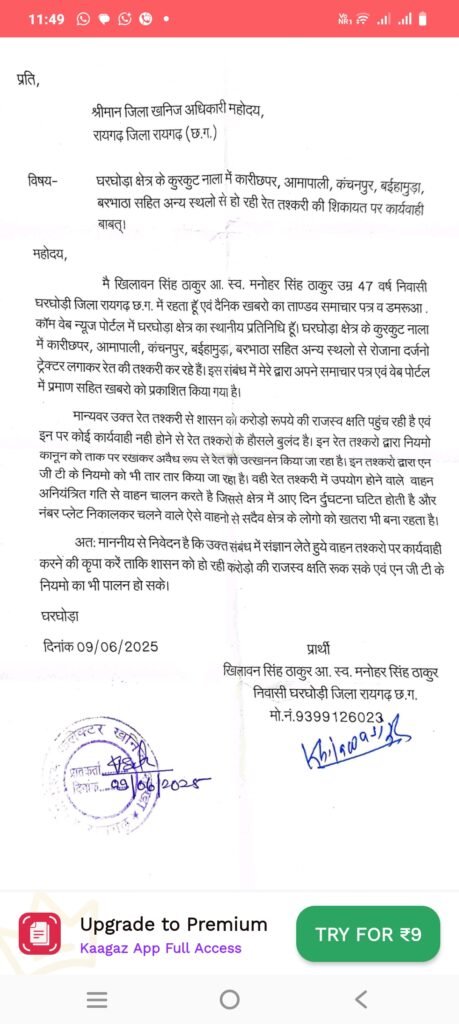 11:49
प्रति,
श्रीमान जिला खनिज अधिकारी महोदय,
रायगढ़ जिला रायगढ़ (छ.ग.)
विषय- घरघोड़ा क्षेत्र के कुरकुट नाला में कारीछपर, आमापाली, कंचनपुर, बईहामुड़ा,
बरभाठा सहित अन्य स्थलो से हो रही रेत तश्करी की शिकायत पर कार्यवाही
बाबत्।
महोदय,
मै खिलावन सिंह ठाकुर आ. स्व. मनोहर सिंह ठाकुर उम्र 47 वर्ष निवासी
घरघोड़ी जिला रायगढ़ छ.ग. में रहता हूँ एवं दैनिक खबरो का ताण्डव समाचार पत्र व डमरूआ .
कॉम वेब न्यूज पोर्टल में घरघोड़ा क्षेत्र का स्थानीय प्रतिनिधि हूँ। घरघोड़ा क्षेत्र के कुरकुट नाला
में कारीछपर, आमापाली, कंचनपुर, बईहामुड़ा, बरभाठा सहित अन्य स्थलो से रोजाना दर्जनो
ट्रेक्टर लगाकर रेत की तश्करी कर रहे हैं। इस संबंध में मेरे द्वारा अपने समाचार पत्र एवं वेब पोर्टल
में प्रमाण सहित खबरो को प्रकाशित किया गया है।
मान्यवर उक्त रेत तश्करी से शासन को करोड़ो रूपये की राजस्व क्षति पहुंच रही है एवं
इन पर कोई कार्यवाही नही होने से रेत तश्करो के हौसले बुलंद है। इन रेत तश्करो द्वारा नियमो
कानून को ताक पर रखकर अवैध रूप से रेत को उत्खनन किया जा रहा है। इन तश्करो द्वारा एन
जी टी के नियमो को भी तार तार किया जा रहा है। वही रेत तश्करी में उपयोग होने वाले वाहन
अनियंत्रित गति से वाहन चालन करते है जिससे क्षेत्र में आए दिन र्दुघटना घटित होती है और
नंबर प्लेट निकालकर चलने वाले ऐसे वाहनो से सदैव क्षेत्र के लोगो को खतरा भी बना रहता है।
अत: माननीय से निवेदन है कि उक्त संबंध में संज्ञान लेते हुये वाहन तश्करो पर कार्यवाही
करने की कृपा करें ताकि शासन को हो रही करोड़ो की राजस्व क्षति रूक सके एवं एन जी टी के
नियमो का भी पालन हो सके।
घरघोड़ा
दिनांक 09/06/2025
प्रार्थी
खिलावन सिंह ठाकुर आ. स्व. मनोहर सिंह ठाकुर
निवासी घरघोड़ी जिला रायगढ़ छ.ग.
मो.नं.9399126023
दिनांक 09/06/2025
Upgrade to Premium
Kaagaz App Full Access
TRY FOR ₹9